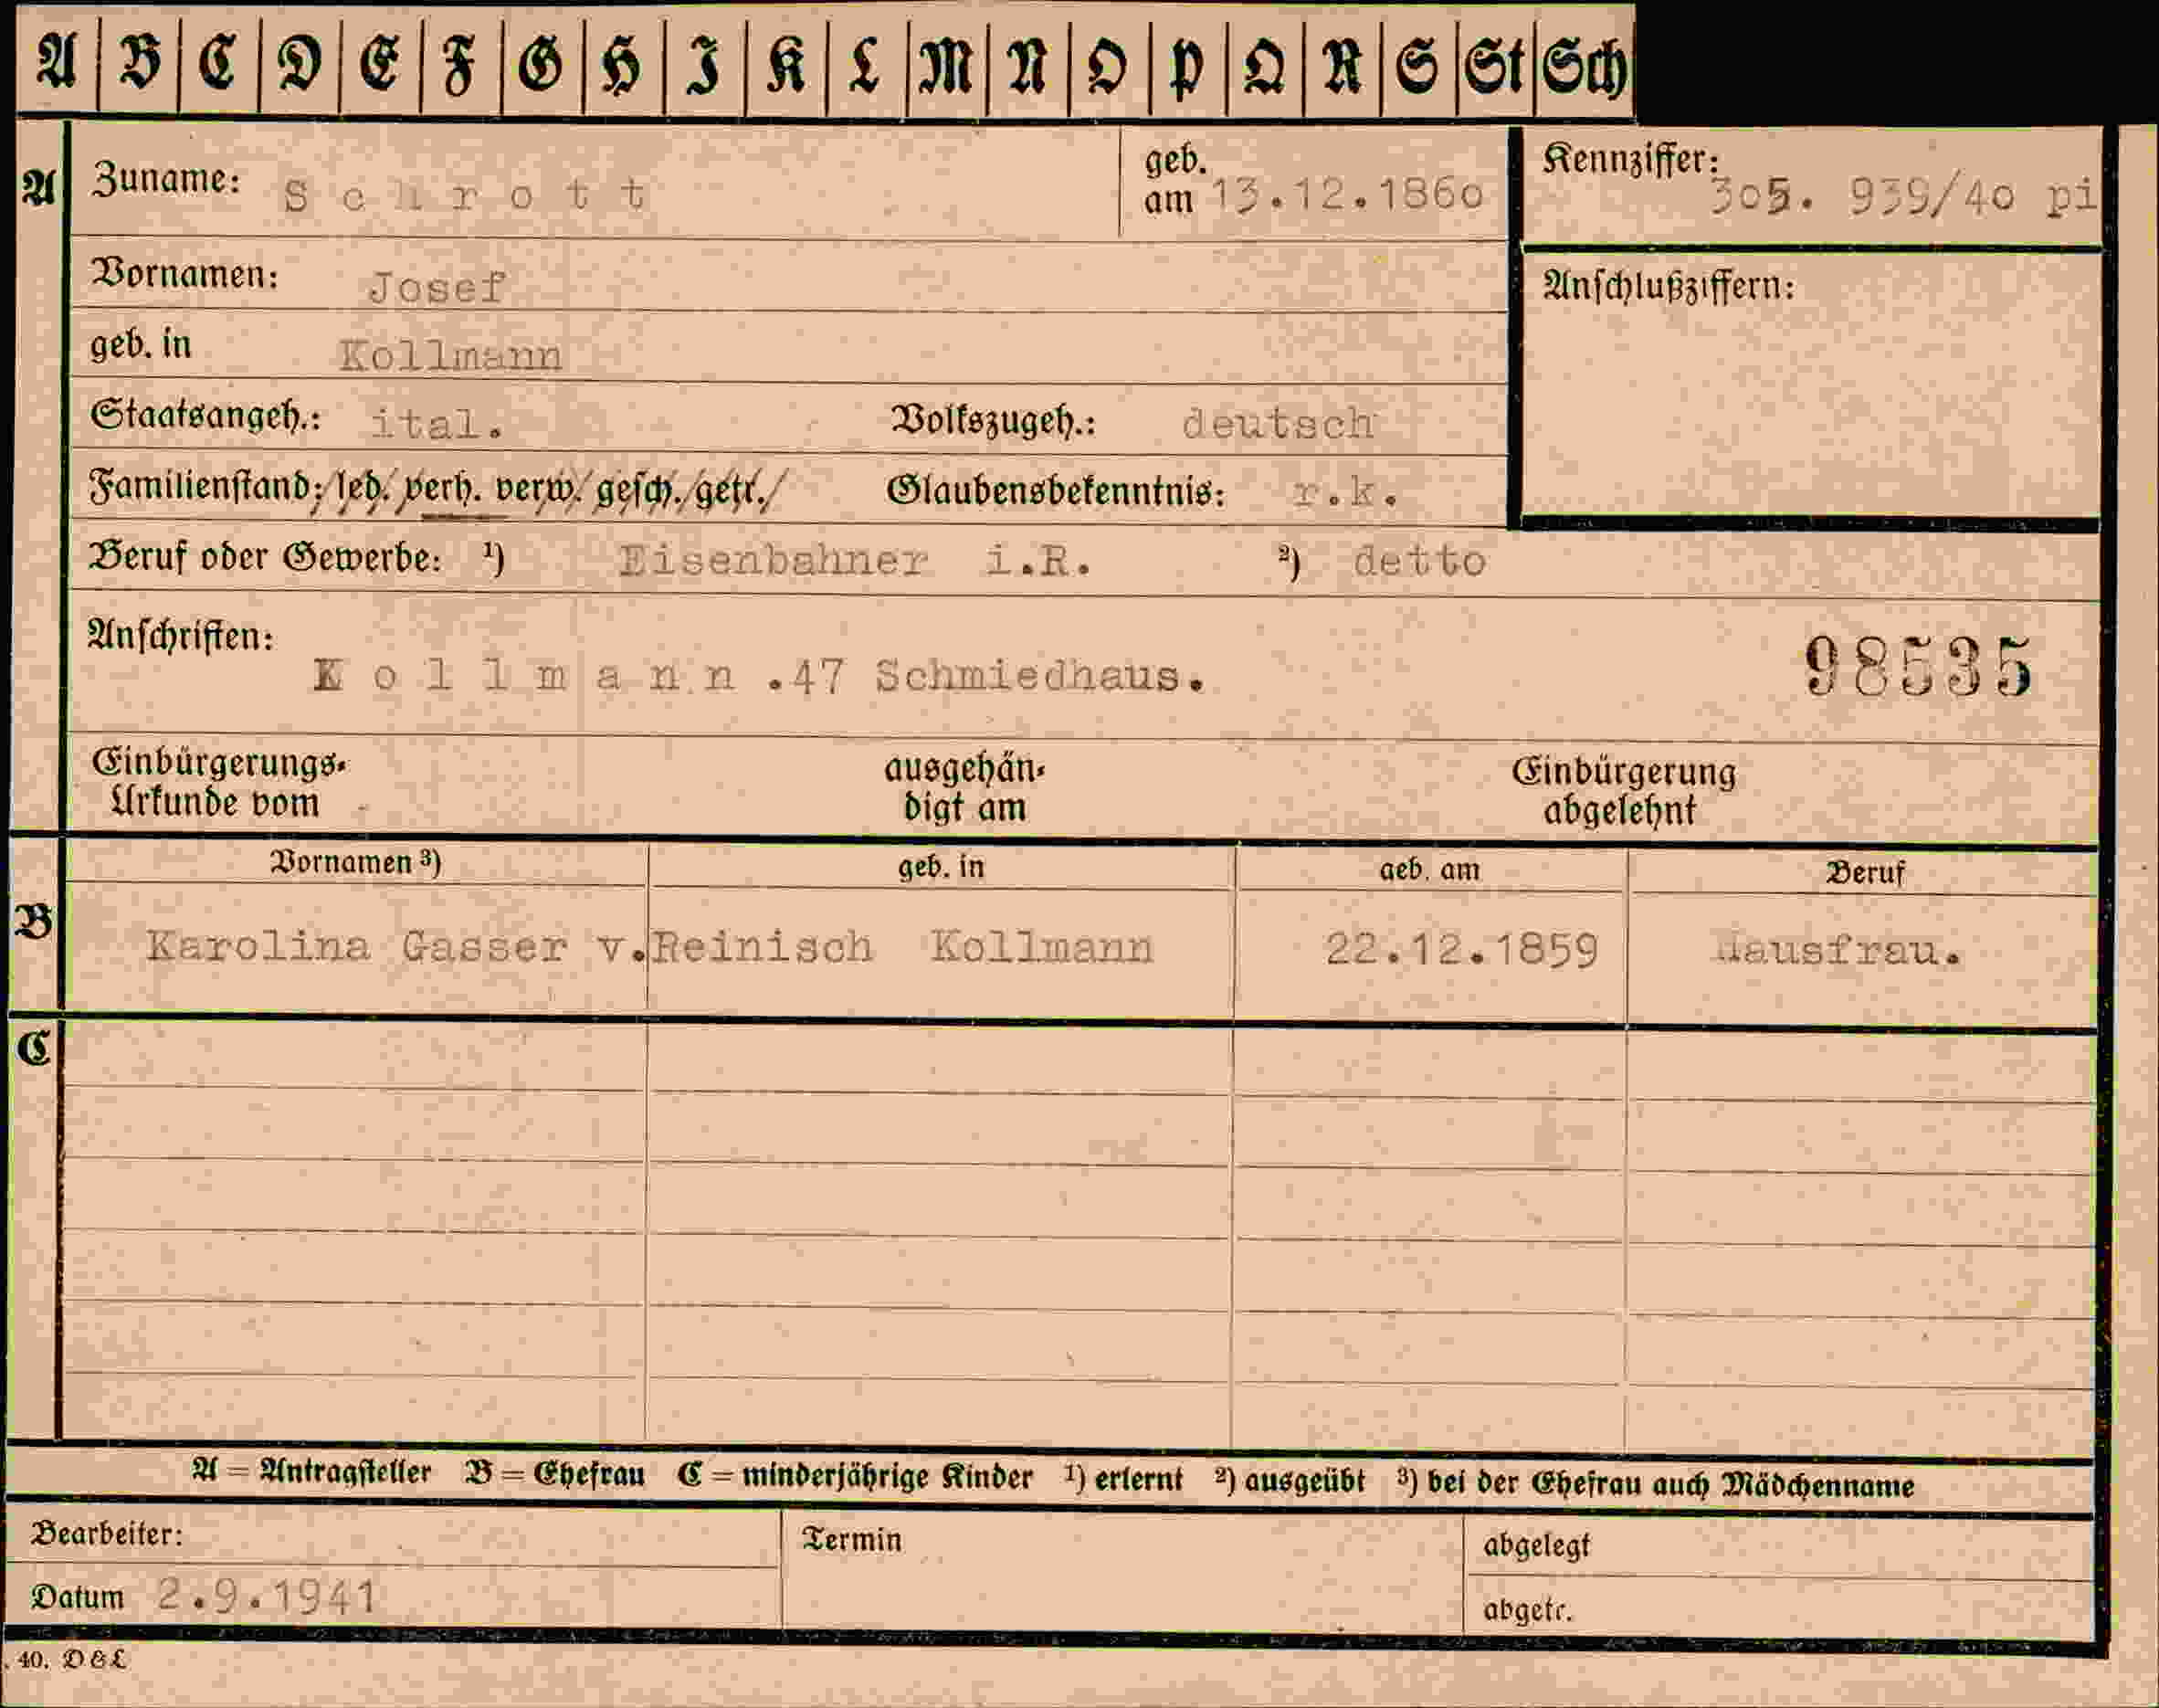 A B C D E F G H I K L M N O P Q R S St Sch
A Zuname: S c h r o t t geb. am 13.12.1860 Kennziffer: 305. 939/40 pi
Vornamen: Josef Anschlußziffern:
geb. in Kollmann
Staatsangeh.: ital. Volkszugeh.: deutsch
Familienstand: led. verh. verw. gesch. getr. Glaubensbekenntnis: r.k.
Beruf oder Gewerbe: ¹) Eisenbahner i.R. ²) detto
Anschriften:
K o l l m a n n .47 Schmiedhaus. 98535
Einbürgerungs- ausgehän- Einbürgerung
Urkunde vom digt am abgelehnt
B Vornamen ³) geb. in geb. am Beruf
Karolina Gasser v.Reinisch Kollmann 22.12.1859 Hausfrau.
C
A = Antragsteller B = Ehefrau C = minderjährige Kinder ¹) erlernt ²) ausgeübt ³) bei der Ehefrau auch Mädchenname
Bearbeiter: Termin abgelegt
Datum 2.9.1941 abgetr.
40. D & L